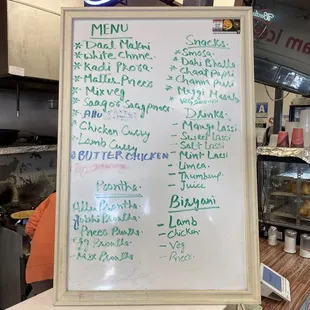 MENU
* Daal Makni
* White Chnne
* Kadi Pkoea
* Matter Pnees
* Mix veg
* Saag
* Allu
* Chicken Curry
* Lamb Curry
* BUTTER CHICKEN
Prontha
Allu Prontha
Gobhi Prontha
Pnees Prontha
Egg Prontha
Mix Prontha
Snacks.
* Smosa
* Dahi Bhalla
* Chaat Papri
* Channa Puri
* Maggi Masala
Drinks
- Mango Lassi
- Sweet Lassi
- Salt Lassi
- Mint Lassi
- Limca.
- Thumsup
- Juice
Biryani
- Lamb
- Chicken
- Veg
- Pnees